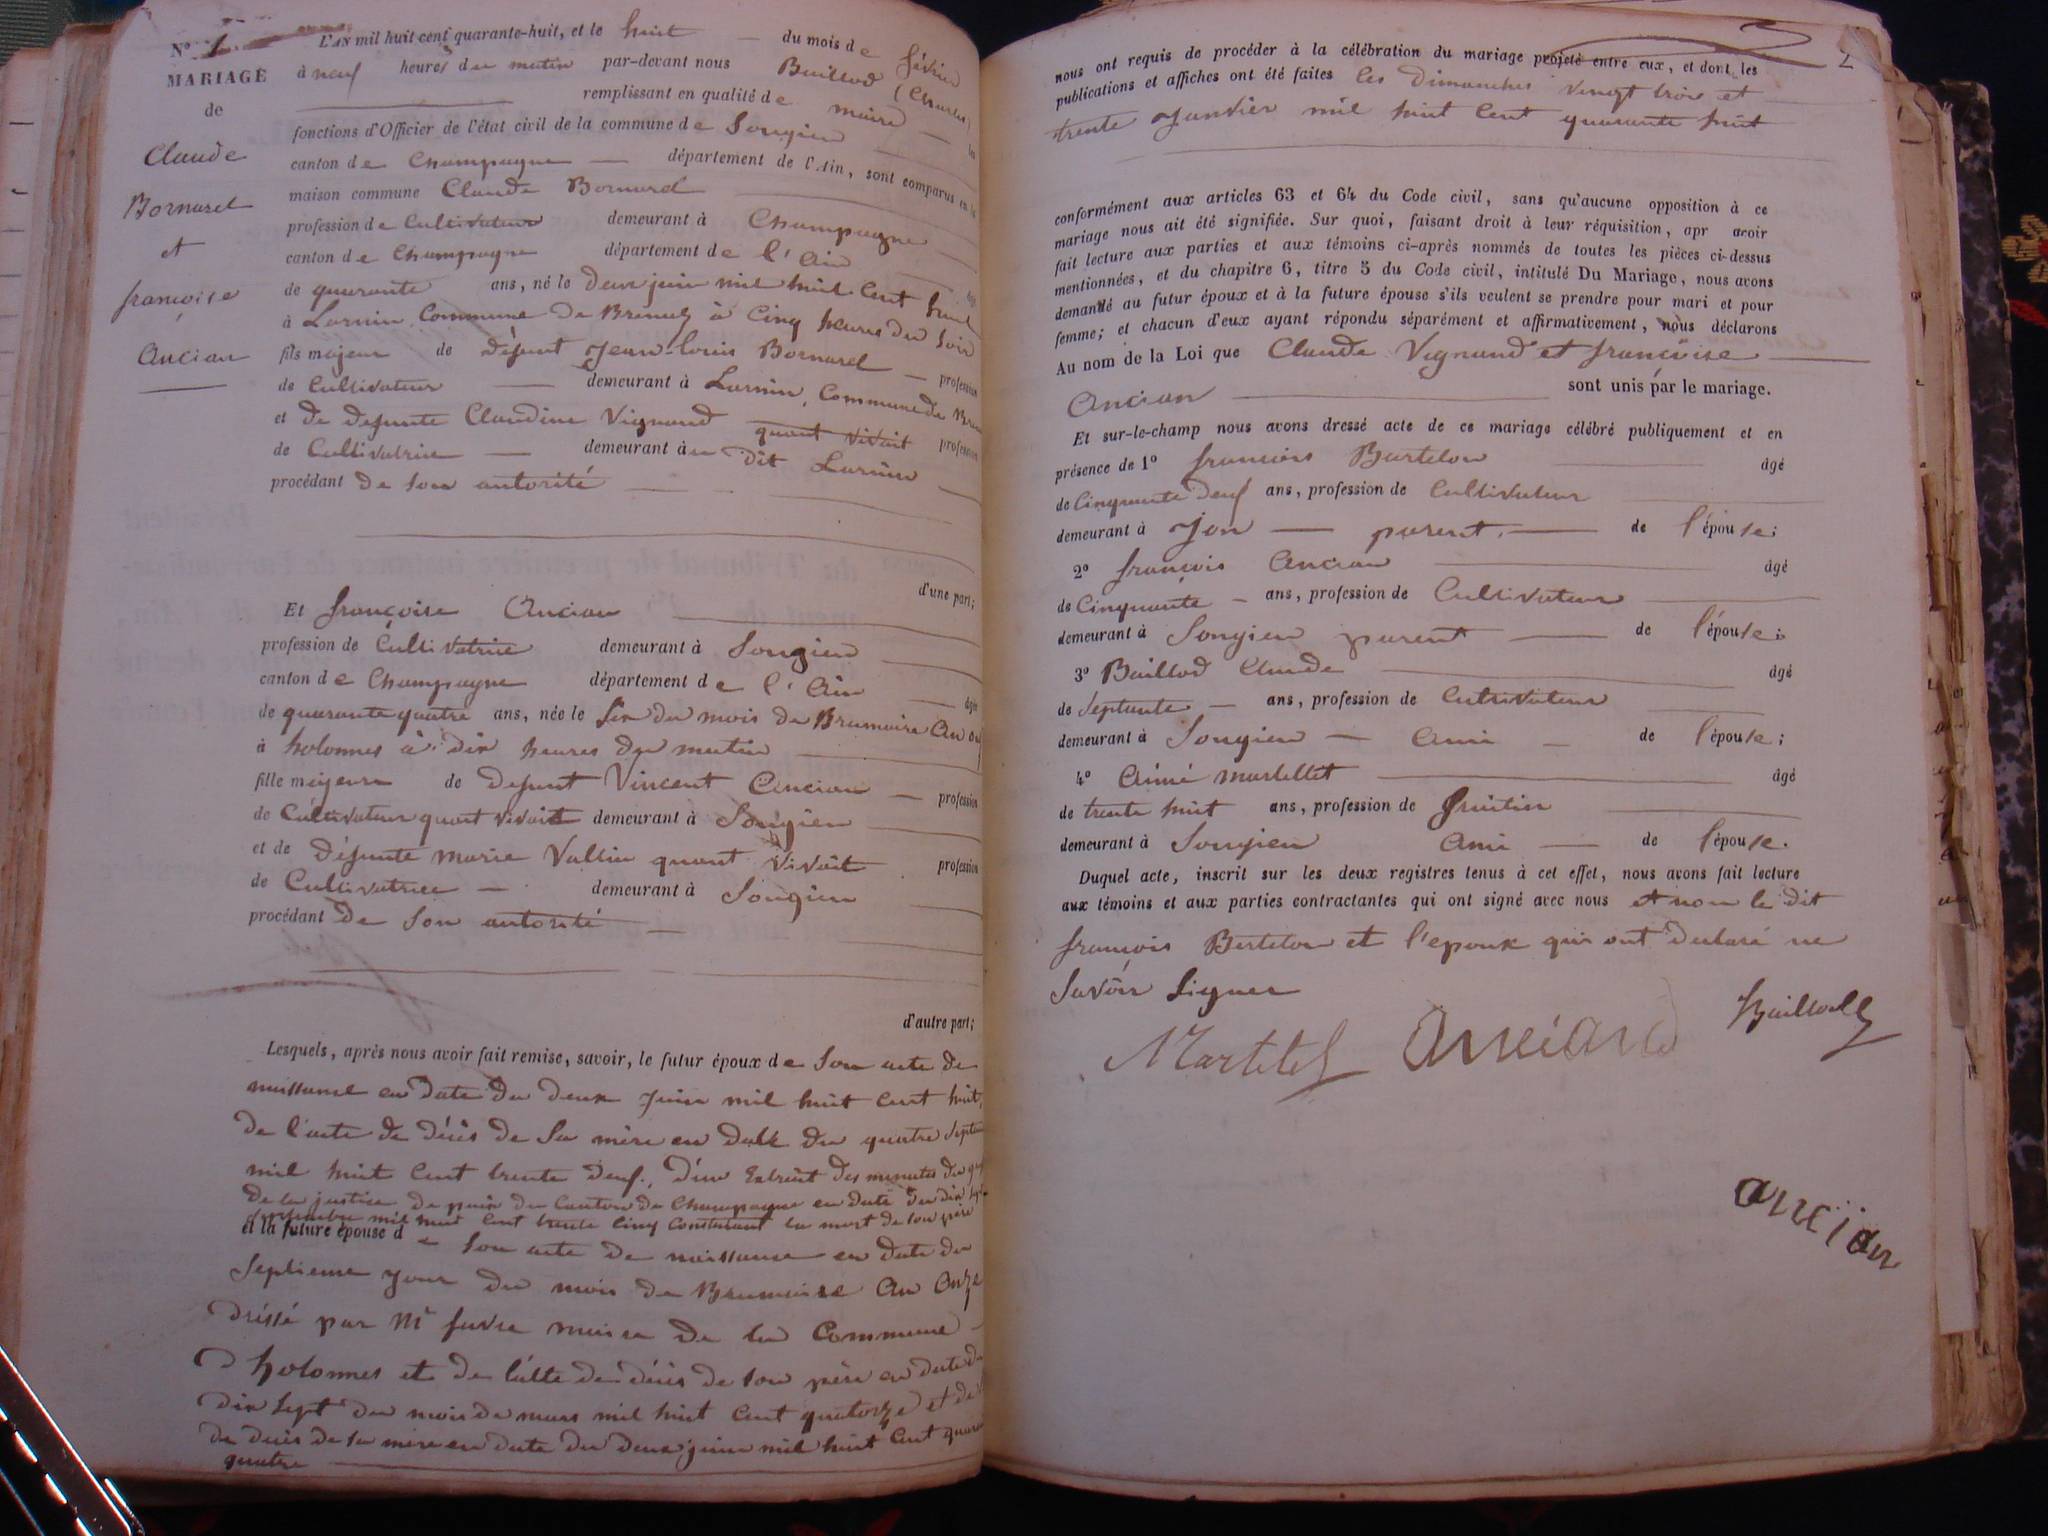 N° 1
MARIAGE
de
Claude
Bornarel
et
françoise
Ancian
L'AN mil huit cent quarante-huit, et le huit du mois de février
à neuf heures du matin par-devant nous Baillod (Charles)
remplissant en qualité de maire les
fonctions d'Officier de l'état civil de la commune de Songieu
canton de Champagne département de l'Ain, sont comparus en la
maison commune Claude Bornarel
profession de Cultivateur demeurant à Champagne
canton de Champagne département de l'Ain âgé
de quarante ans, né le deux juin mil huit cent huit
à Larnin, Commune de Brenaz à Cinq heures du soir
fils majeur de défunt Jean-louis Bornarel profession
de Cultivateur demeurant à Larnin, Commune de
et de defunte Claudine Vignand quant vivait profession
de Cultivatrice demeurant au dit Larnin
procédant de son autorité
d'une part;
Et françoise Ancian
profession de Cultivatrice demeurant à Songieu
canton de Champagne département de l'Ain âgée
de quarante quatre ans, née le six du mois de Brumaire An
à holonnes à dix heures du matin
fille majeure de defunt Vincent Ancian profession
de Cultivateur quant vivait demeurant à Songieu
et de défunte marie Vallin quant vivait profession
de Cultivatrice demeurant à Songieu
procédant de son autorité
d'autre part;
Lesquels, après nous avoir fait remise, savoir, le futur époux de son acte de
naissance en date du deux juin mil huit cent huit,
de l'acte de décès de sa mère en date du quatre
mil huit cent trente neuf, d'un Extrait des minutes du
de la justice de paix du Canton de Champagne en date du dix
septembre mil huit cent trente cinq constatant la mort de son père
et la future épouse de son acte de naissance en date du
septieme jour du mois de Brumaire An Onze
dréssé par Mr favre maire de la Commune
d holonnes et de l'acte de décès de son père en date du
dix sept du mois de mars mil huit cent quatorze et de
de décès de sa mère en date du deux juin mil huit cent
quatre
2
nous ont requis de procéder à la célébration du mariage projeté entre eux, et dont les
publications et affiches ont été faites les Dimanches vingt trois et
trente Janvier mil huit cent quarante huit
conformément aux articles 63 et 64 du Code civil, sans qu'aucune opposition à ce
mariage nous ait été signifiée. Sur quoi, faisant droit à leur réquisition, apr avoir
fait lecture aux parties et aux témoins ci-après nommés de toutes les pièces ci-dessus
mentionnées, et du chapitre 6, titre 5 du Code civil, intitulé Du Mariage, nous avons
demandé au futur époux et à la future épouse s'ils veulent se prendre pour mari et pour
femme; et chacun d'eux ayant répondu séparément et affirmativement, nous déclarons
Au nom de la Loi que Claude Vignand et françoise
Ancian sont unis par le mariage.
Et sur-le-champ nous avons dressé acte de ce mariage célébré publiquement et en
présence de 1° françois Bertelon âgé
de Cinquante neuf ans, profession de Cultivateur
demeurant à Jon parent de l'épouse;
2° françois Ancian âgé
de Cinquante ans, profession de Cultivateur
demeurant à Songieu parent de l'épouse;
3° Baillod Claude âgé
de Septante ans, profession de Cultivateur
demeurant à Songieu Ami de l'épouse;
4° Aimé martellet âgé
de trente huit ans, profession de fruitier
demeurant à Songieu Ami de l'épouse.
Duquel acte, inscrit sur les deux registres tenus à cet effet, nous avons fait lecture
aux témoins et aux parties contractantes qui ont signé avec nous et non le dit
françois Bertelon et l'epoux qui ont declaré ne
savoir signer
Martelet Anciand Baillod
ancïan